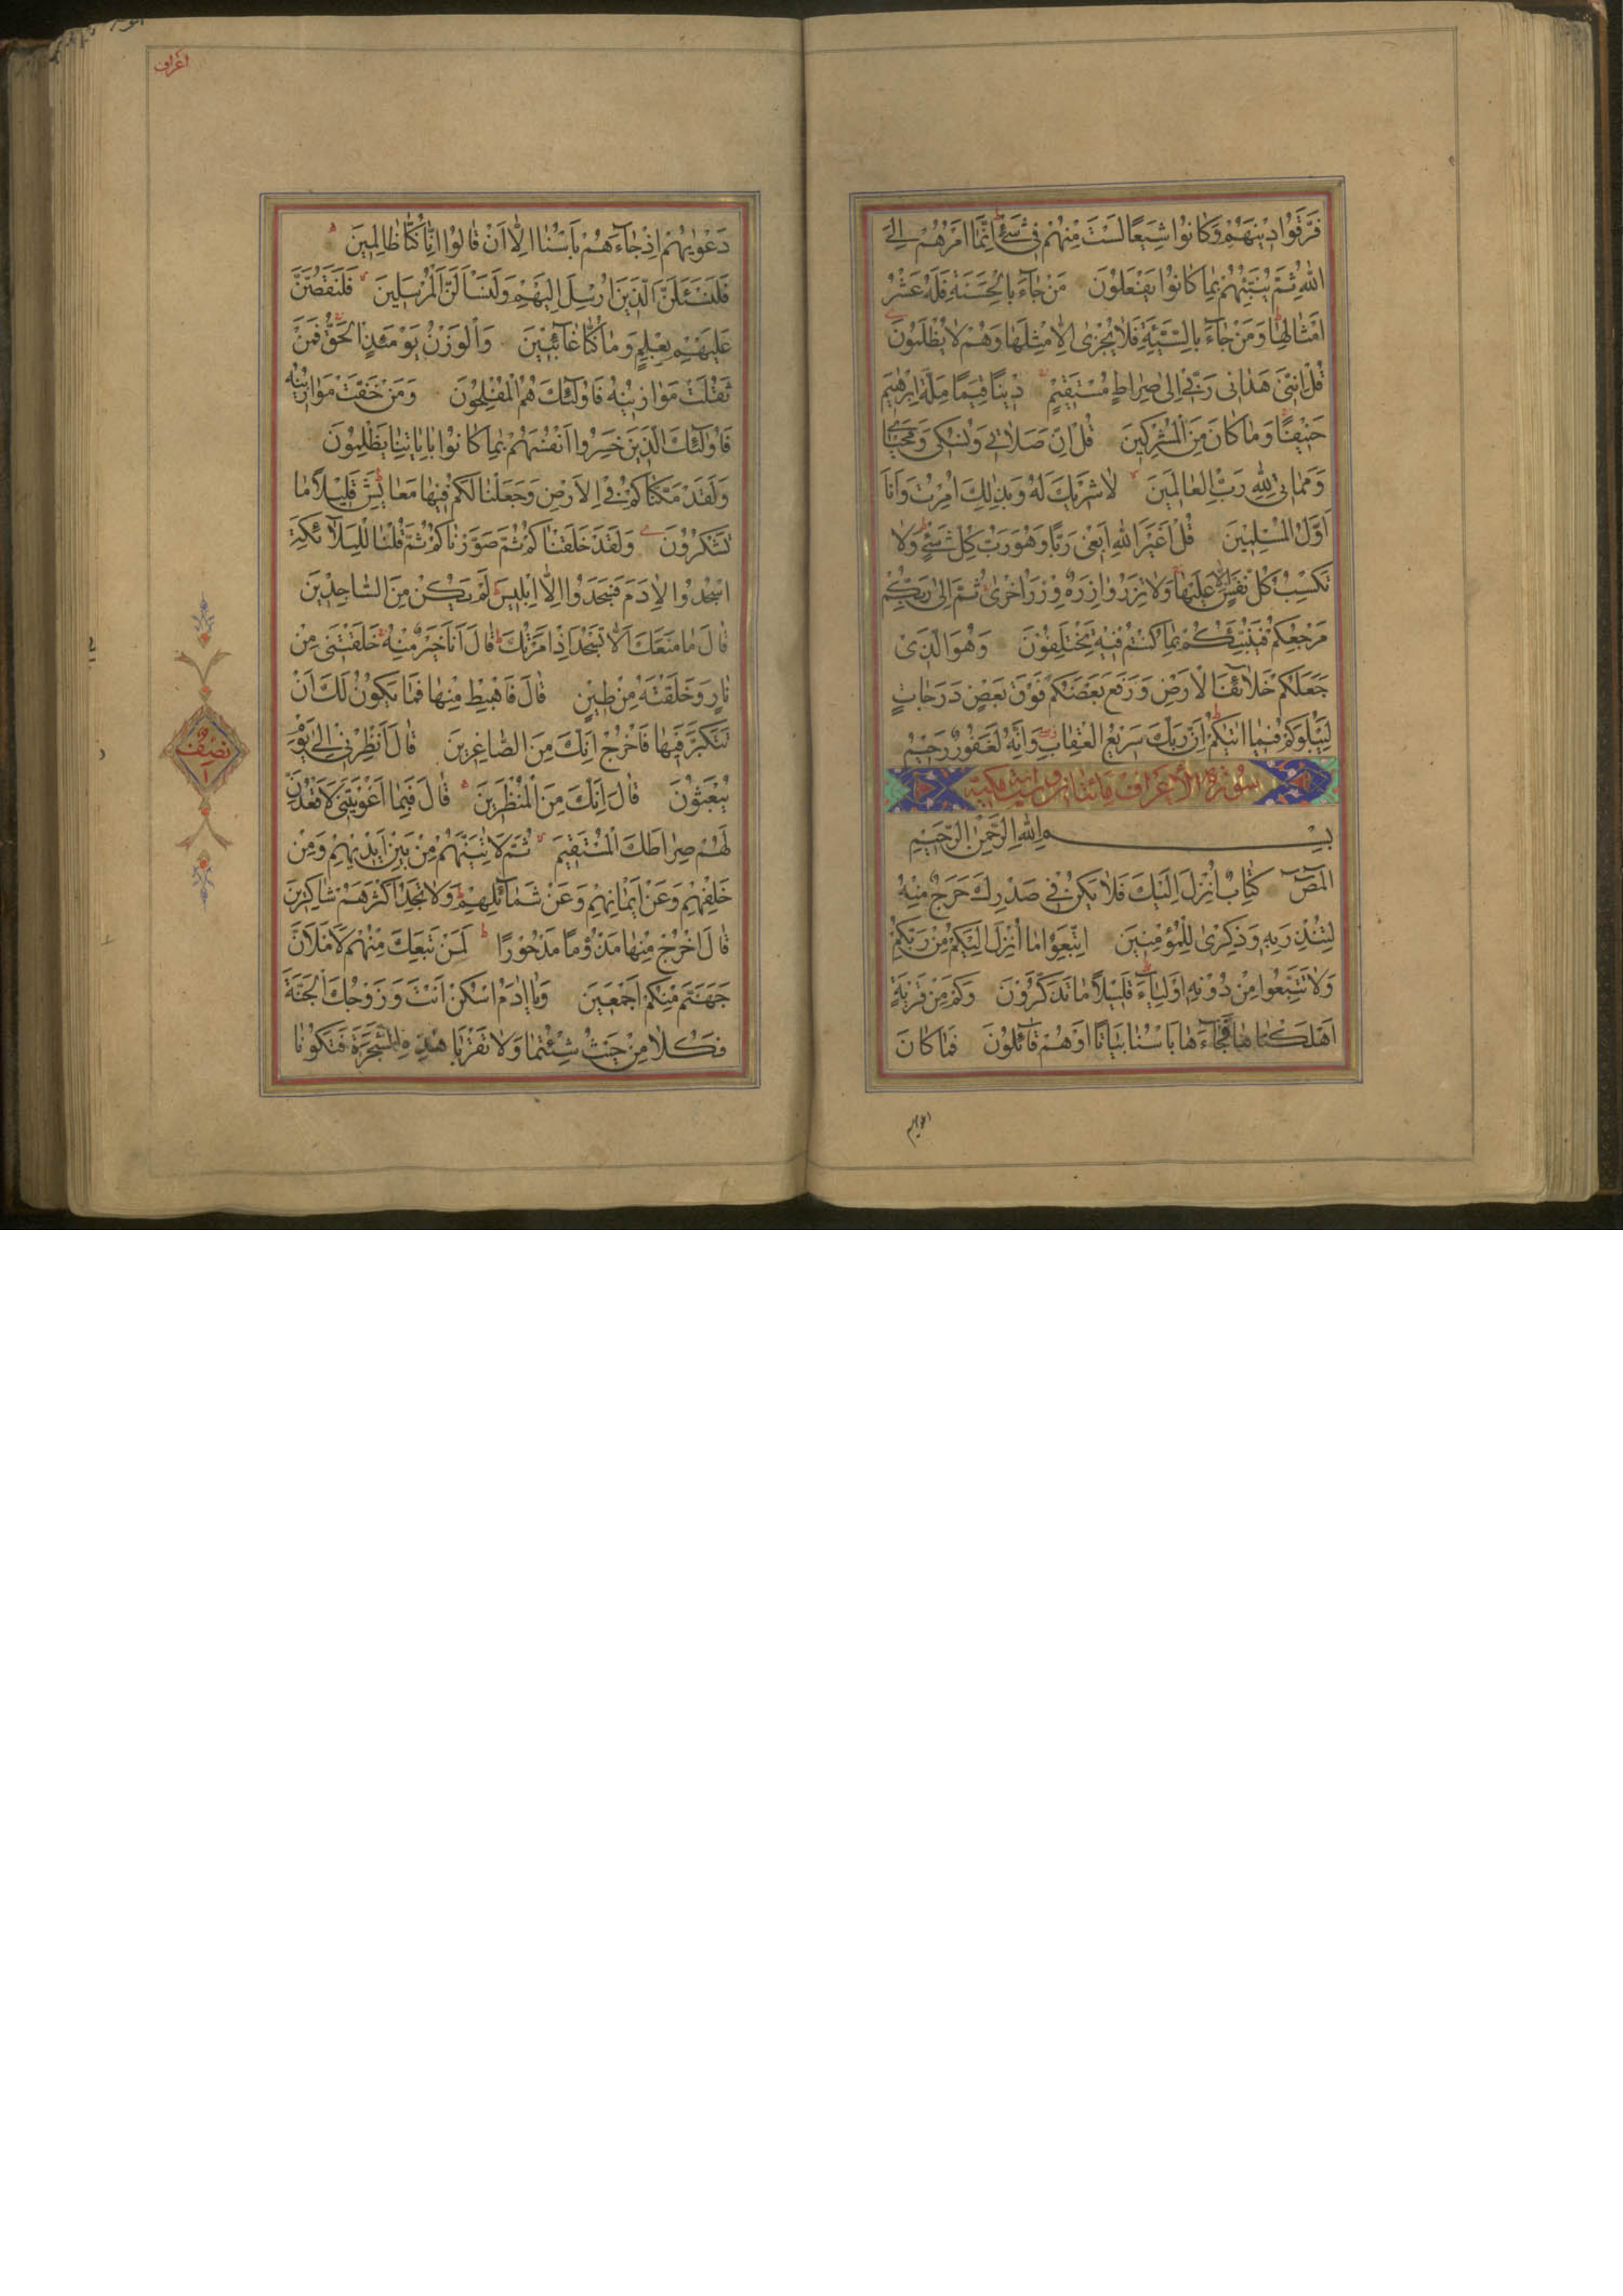 فَرَّقُوا دِينَهُمْ وَكَانُوا شِيَعًا لَسْتَ مِنْهُمْ فِي شَيْءٍ إِنَّمَا أَمْرُهُمْ إِلَى
اللَّهِ ثُمَّ يُنَبِّئُهُمْ بِمَا كَانُوا يَفْعَلُونَ مَنْ جَاءَ بِالْحَسَنَةِ فَلَهُ عَشْرُ
أَمْثَالِهَا وَمَنْ جَاءَ بِالسَّيِّئَةِ فَلَا يُجْزَى إِلَّا مِثْلَهَا وَهُمْ لَا يُظْلَمُونَ
قُلْ إِنَّنِي هَدَانِي رَبِّي إِلَى صِرَاطٍ مُسْتَقِيمٍ دِينًا قِيَمًا مِلَّةَ إِبْرٰهِيمَ
حَنِيفًا وَمَا كَانَ مِنَ الْمُشْرِكِينَ قُلْ إِنَّ صَلَاتِي وَنُسُكِي وَمَحْيَايَ
وَمَمَاتِي لِلَّهِ رَبِّ الْعَالَمِينَ لَا شَرِيكَ لَهُ وَبِذَلِكَ أُمِرْتُ وَأَنَا
أَوَّلُ الْمُسْلِمِينَ قُلْ أَغَيْرَ اللَّهِ أَبْغِي رَبًّا وَهُوَ رَبُّ كُلِّ شَيْءٍ وَلَا
تَكْسِبُ كُلُّ نَفْسٍ إِلَّا عَلَيْهَا وَلَا تَزِرُ وَازِرَةٌ وِزْرَ أُخْرَى ثُمَّ إِلَى رَبِّكُمْ
مَرْجِعُكُمْ فَيُنَبِّئُكُمْ بِمَا كُنْتُمْ فِيهِ تَخْتَلِفُونَ وَهُوَ الَّذِي
جَعَلَكُمْ خَلَائِفَ الْأَرْضِ وَرَفَعَ بَعْضَكُمْ فَوْقَ بَعْضٍ دَرَجَاتٍ
لِيَبْلُوَكُمْ فِيمَا آتٰيكُمْ إِنَّ رَبَّكَ سَرِيعُ الْعِقَابِ وَإِنَّهُ لَغَفُورٌ رَحِيمٌ
سُورَةُ الْأَعْرَافِ مائتان وست آيات مكية
بِسْمِ اللَّهِ الرَّحْمَنِ الرَّحِيمِ
الٓمٓصٓ كِتَابٌ أُنْزِلَ إِلَيْكَ فَلَا يَكُنْ فِي صَدْرِكَ حَرَجٌ مِنْهُ
لِتُنْذِرَ بِهِ وَذِكْرَى لِلْمُؤْمِنِينَ اتَّبِعُوا مَا أُنْزِلَ إِلَيْكُمْ مِنْ رَبِّكُمْ
وَلَا تَتَّبِعُوا مِنْ دُونِهِ أَوْلِيَاءَ قَلِيلًا مَا تَذَكَّرُونَ وَكَمْ مِنْ قَرْيَةٍ
أَهْلَكْنَاهَا فَجَاءَهَا بَأْسُنَا بَيَاتًا أَوْ هُمْ قَائِلُونَ فَمَا كَانَ
دعويهم
اعراف
دَعْوٰيهُمْ إِذْ جَاءَهُمْ بَأْسُنَا إِلَّا أَنْ قَالُوا إِنَّا كُنَّا ظَالِمِينَ
فَلَنَسْئَلَنَّ الَّذِينَ أُرْسِلَ إِلَيْهِمْ وَلَنَسْأَلَنَّ الْمُرْسَلِينَ فَلَنَقُصَّنَّ
عَلَيْهِمْ بِعِلْمٍ وَمَا كُنَّا غَائِبِينَ وَالْوَزْنُ يَوْمَئِذٍ الْحَقُّ فَمَنْ
ثَقُلَتْ مَوَازِينُهُ فَأُولَئِكَ هُمُ الْمُفْلِحُونَ وَمَنْ خَفَّتْ مَوَازِينُهُ
فَأُولَئِكَ الَّذِينَ خَسِرُوا أَنْفُسَهُمْ بِمَا كَانُوا بِآيَاتِنَا يَظْلِمُونَ
وَلَقَدْ مَكَّنَّاكُمْ فِي الْأَرْضِ وَجَعَلْنَا لَكُمْ فِيهَا مَعَايِشَ قَلِيلًا مَا
تَشْكُرُونَ وَلَقَدْ خَلَقْنَاكُمْ ثُمَّ صَوَّرْنَاكُمْ ثُمَّ قُلْنَا لِلْمَلَائِكَةِ
اسْجُدُوا لِآدَمَ فَسَجَدُوا إِلَّا إِبْلِيسَ لَمْ يَكُنْ مِنَ السَّاجِدِينَ
قَالَ مَا مَنَعَكَ أَلَّا تَسْجُدَ إِذْ أَمَرْتُكَ قَالَ أَنَا خَيْرٌ مِنْهُ خَلَقْتَنِي مِنْ
نَارٍ وَخَلَقْتَهُ مِنْ طِينٍ قَالَ فَاهْبِطْ مِنْهَا فَمَا يَكُونُ لَكَ أَنْ
تَتَكَبَّرَ فِيهَا فَاخْرُجْ إِنَّكَ مِنَ الصَّاغِرِينَ قَالَ أَنْظِرْنِي إِلَى يَوْمِ
يُبْعَثُونَ قَالَ إِنَّكَ مِنَ الْمُنْظَرِينَ قَالَ فَبِمَا أَغْوَيْتَنِي لَأَقْعُدَنَّ
لَهُمْ صِرَاطَكَ الْمُسْتَقِيمَ ثُمَّ لَآتِيَنَّهُمْ مِنْ بَيْنِ أَيْدِيهِمْ وَمِنْ
خَلْفِهِمْ وَعَنْ أَيْمَانِهِمْ وَعَنْ شَمَائِلِهِمْ وَلَا تَجِدُ أَكْثَرَهُمْ شَاكِرِينَ
قَالَ اخْرُجْ مِنْهَا مَذْؤُمًا مَدْحُورًا لَمَنْ تَبِعَكَ مِنْهُمْ لَأَمْلَأَنَّ
جَهَنَّمَ مِنْكُمْ أَجْمَعِينَ وَيَا آدَمُ اسْكُنْ أَنْتَ وَزَوْجُكَ الْجَنَّةَ
فَكُلَا مِنْ حَيْثُ شِئْتُمَا وَلَا تَقْرَبَا هَذِهِ الشَّجَرَةَ فَتَكُونَا
نصف